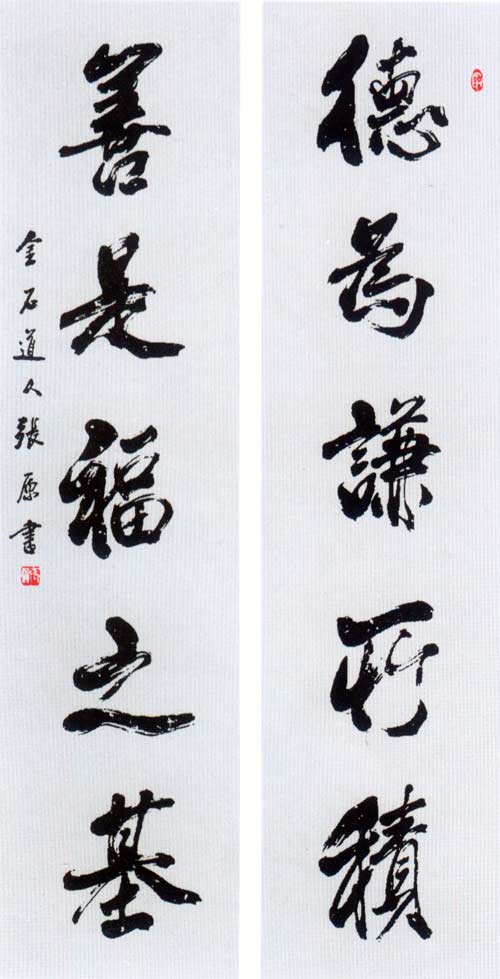 德為謙所積
善是福之基
金石道人張原書